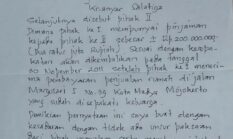 Kranyar Salatiga
Selanjutnya disebut pihak II
Dimana pihak ke I mempunyai pinjaman
kepada pihak ke II sebesar ± Rp 200.000.000-
(Dua ratus juta Rupiah) Sesuai dengan kesepa-
katan akan dikembalikan pada tanggal
30 Nopember Jan setelah pihak ke I meneri-
ma pembayaran penjualan rumah di jalan
Margosari I No. 99 Kota Madya Mojokerto
yang sudah di sepakati keluarga.
Demikian pernyataan ini saya buat dengan
kesadaran dengan tidak ada unsur paksaan